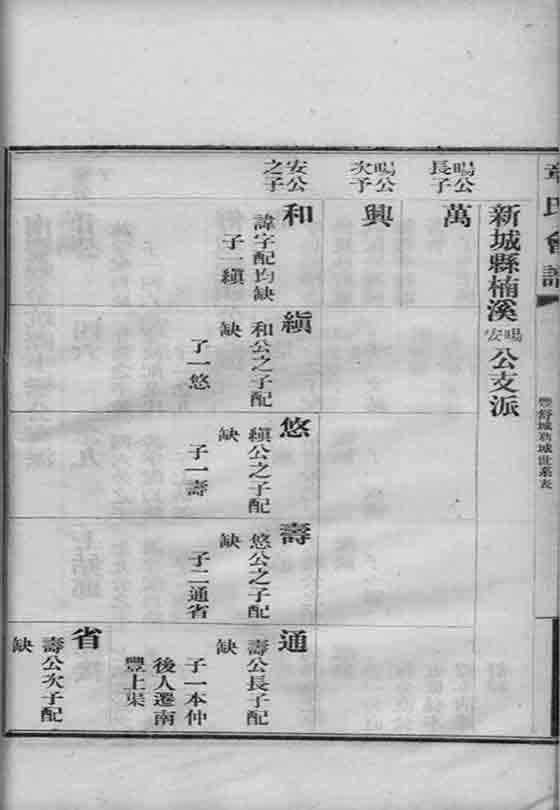 章氏會譜
豐舒城新城世系表
新城縣楠溪暘安公支派
暘公長子
萬
暘公次子
興
安公之子
和
諱字配均缺
子一縝
縝
和公之子配
缺
子一悠
悠
縝公之子配
缺
子一壽
壽
悠公之子配
缺
子二通省
通
壽公長子配
缺
子一本仲
後人遷南
豐上渠
省
壽公次子配
缺